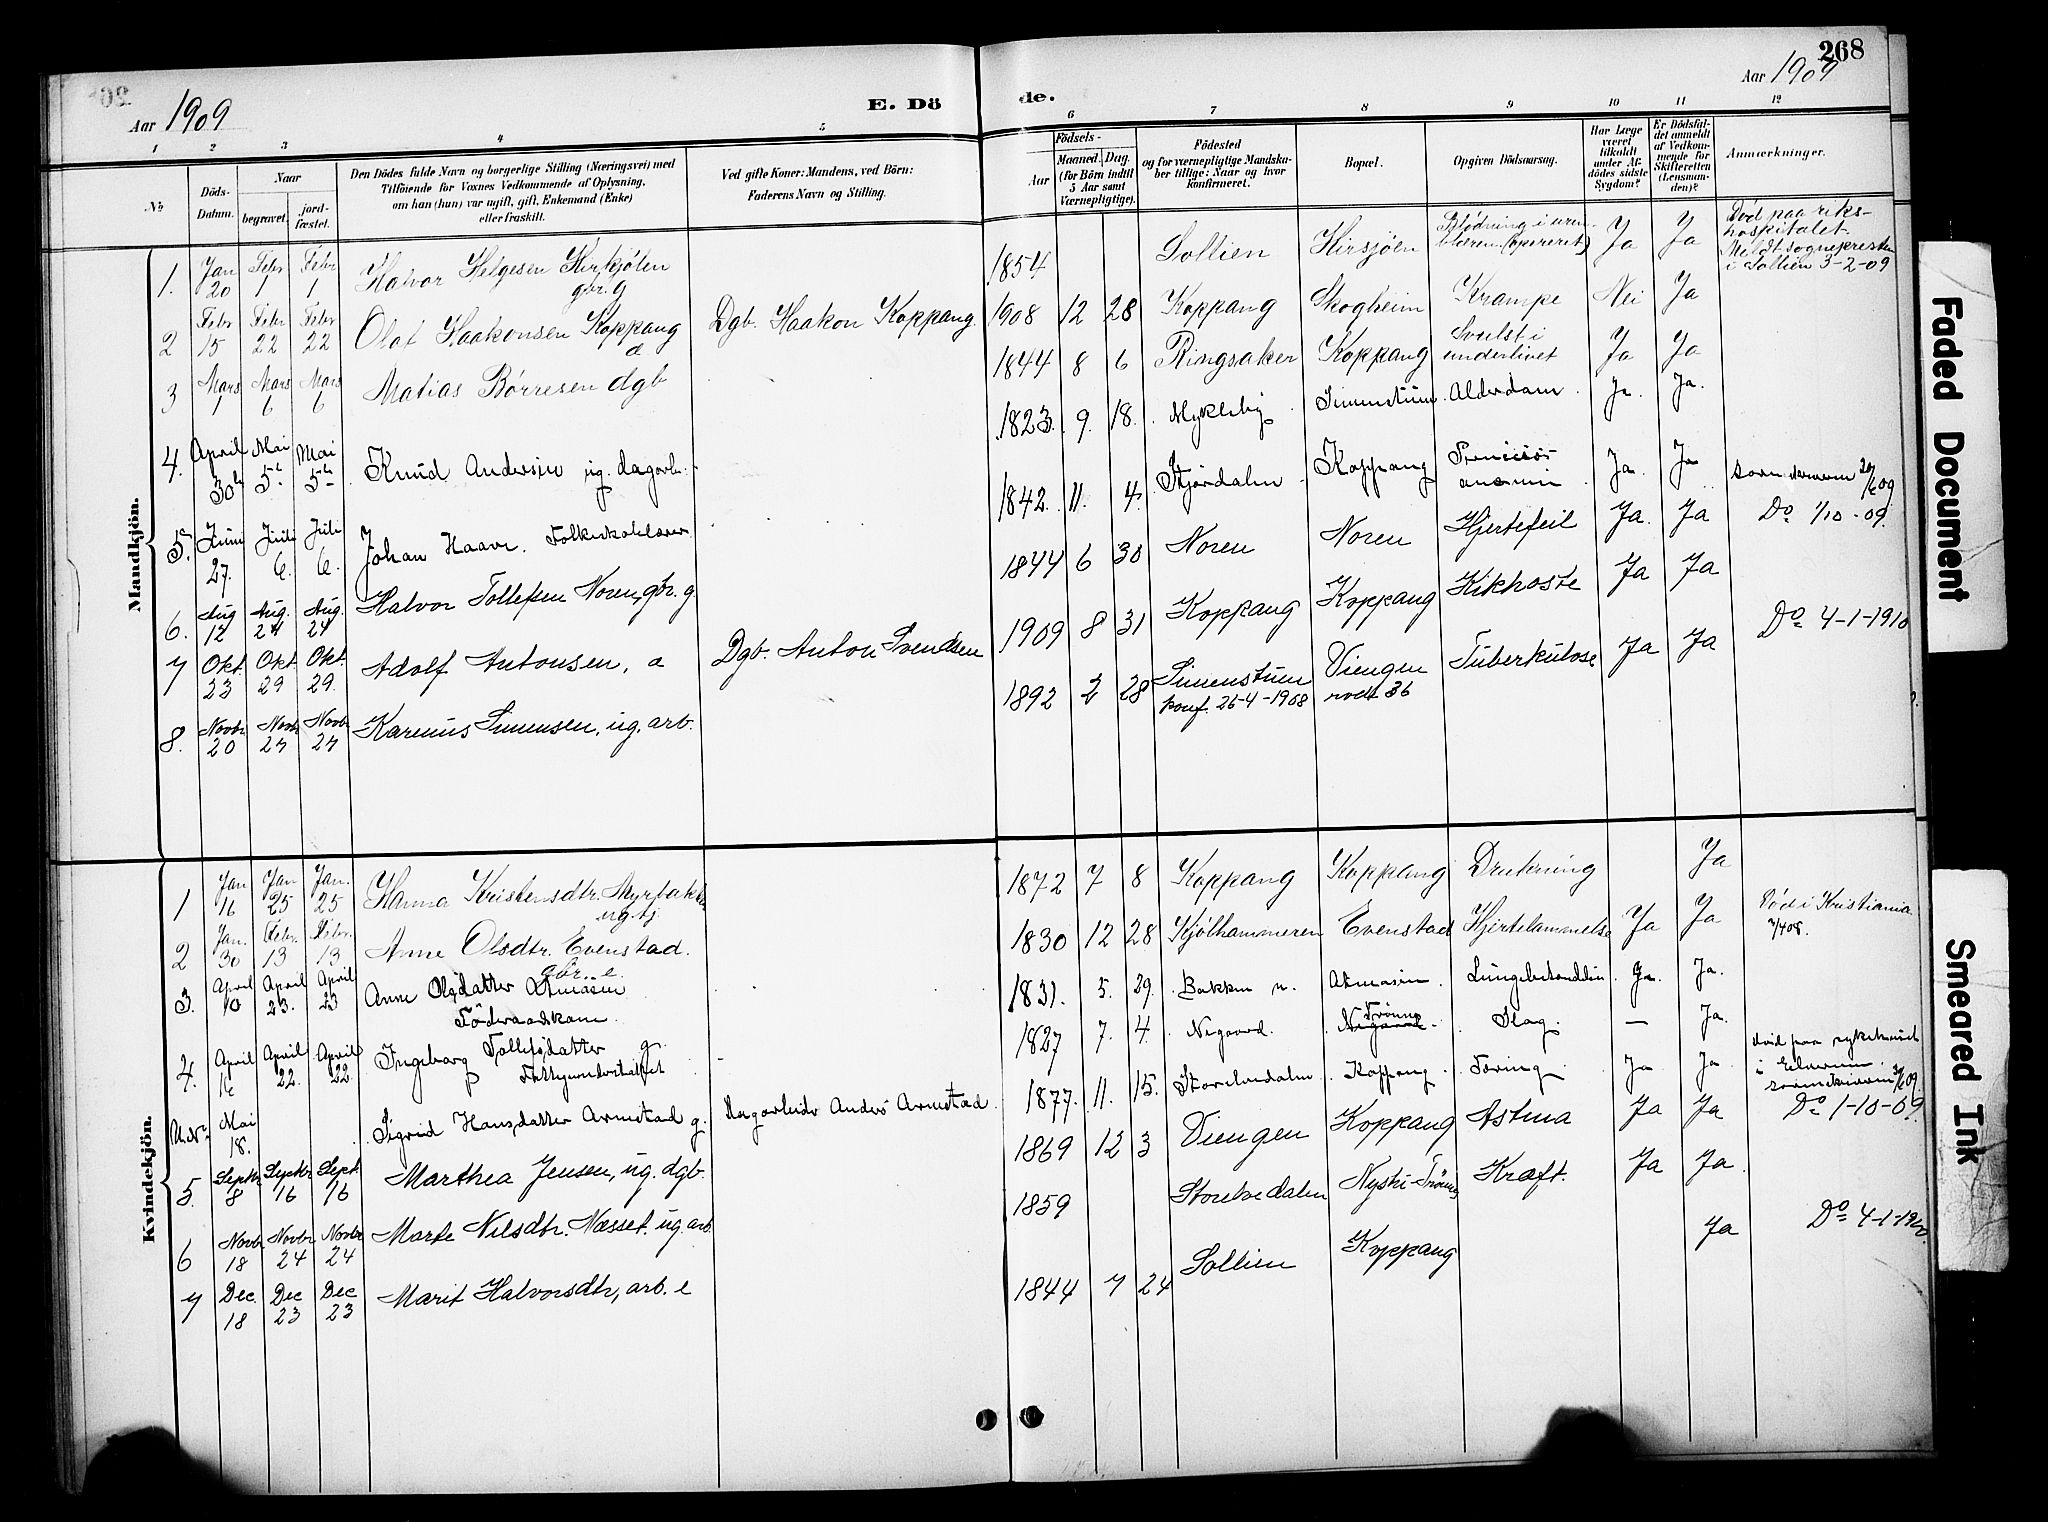 268
Aar 1909
E. Dö
de.
Aar 1909
1 2 3 4 5 6 7 8 9 10 11 12
No
Döds-Datum.
Naar
begravet.
jord-fæstet.
Den Dödes fulde Navn og borgerlige Stilling (Næringsvei) med
Tilföiende for Voxnes Vedkommende af Oplysning,
om han (hun) var ugift, gift, Enkemand (Enke)
eller fraskilt.
Ved gifte Koner: Mandens, ved Börn:
Faderens Navn og Stilling.
Födsels-
Aar
Maaned. Dag.
(for Börn indtil
5 Aar samt
Værnepligtige).
Födested
og for værnepligtige Mandska-
ber tillige: Naar og hvor
konfirmeret.
Bopæl.
Opgiven Dödsaarsag.
Har Læge
været
tilkaldt
under Af-
dödes sidste
Sygdom?
Er Dödsfal-
det anmeldt
af Vedkom-
mende for
Skifteretten
(Lensman-
den)?
Anmærkninger.
Mandkjön.
1. Jan 20 Febr 1 Febr 1 Halvor Helgesen Kirkjölen gbr. g 1854 Sollien Hirsjöen Blødning i urin-blæren (opereret) Ja Ja Död paa riks-hospitalet. Meldt sognepresten i Sollien 3-2-09
2 Febr 15 Febr 22 Febr 22 Olaf Haakonsen Koppang a Dgb. Haakon Koppang 1908 12 28 Koppang Skogheim Krampe Nei Ja
3 Mars 1 Mars 6 Mars 6 Matias Børresen dgb 1844 8 6 Ringsaker Koppang Svulst i underlivet Ja Ja
4. April 30te Mai 5te Mai 5te Knud Andersen ug. dagarb. 1823. 9. 18. Mykleby Simenstuen Alderdom Ja. Ja.
5. Juni 27. Juli 6. Juli 6. Johan Haave. Folkeskolelærer 1842. 11. 4. Stjördalen Koppang Ja. Ja
6. Aug 12 Aug. 24 Aug. 24 Halvor Tollefsen Noren, gbr. g 1844 6 30 Noren Noren Hjertefeil Ja. Ja Do 1/10-09.
7 Okt 23 Okt. 29 Okt. 29. Adolf Antonsen, a Dgb. Anton Svendsen 1909 8 31 Koppang Koppang Kikhoste Ja Ja
8. Novbr 20 Novbr 27 Novbr 27 Karenus Simensen, ug. arb. 1892 2 28 Simenstuen konf. 26-4-1908 Viengen rode 36 Tuberkulose Ja Ja Do 4-1-1910
Kvindekjön.
1 Jan 16 Jan 25 Jan. 25 Hanna Kristensdtr. Myrbakken ug. tj. 1872 7 8 Koppang Koppang Drukning Ja
2 Jan. 30 Febr. 13 Febr. 13 Anne Olsdtr. Evenstad. gbr. e. 1830 12 28 Kjölhammeren Evenstad Hjertelammelse Ja Ja Död i Kristiania
3. April 10 April 23. April 23 Anne Olsdatter Føderaadskone 1831. 5. 29. Bakken n. Ja. Ja.
4. April 16 April 22. April 22. Ingeborg Tollefsdatter g. 1827 7. 4. Nigaard. Nigaard. Slag. — Ja.
Mai 18. Sigrid Hansdatter Arnestad g. Dagarbeider Anders Arnestad 1877. 11. 15. Storelvedalen Koppang. Tæring Ja Ja. død paa sykehuset i Elverum
5. Septbr 8 Septbr 16 Sept. 16 Marthea Jensen, ug. dgb. 1869 12 3 Viengen Koppang Astma Ja Ja Do 1-10-09.
6 Novbr 18 Novbr 24 Novbr 24 Marte Nilsdtr. Næsset. ug. arb. 1859 Storelvedalen Nystu-Trönnes Kræft. Ja Ja.
7 Dec. 18 Dec 23 Dec 23 Marit Halvorsdtr, arb. e 1844 7 24 Sollien Koppang Ja Do 4-1-1910.
Faded Document
Smeared Ink